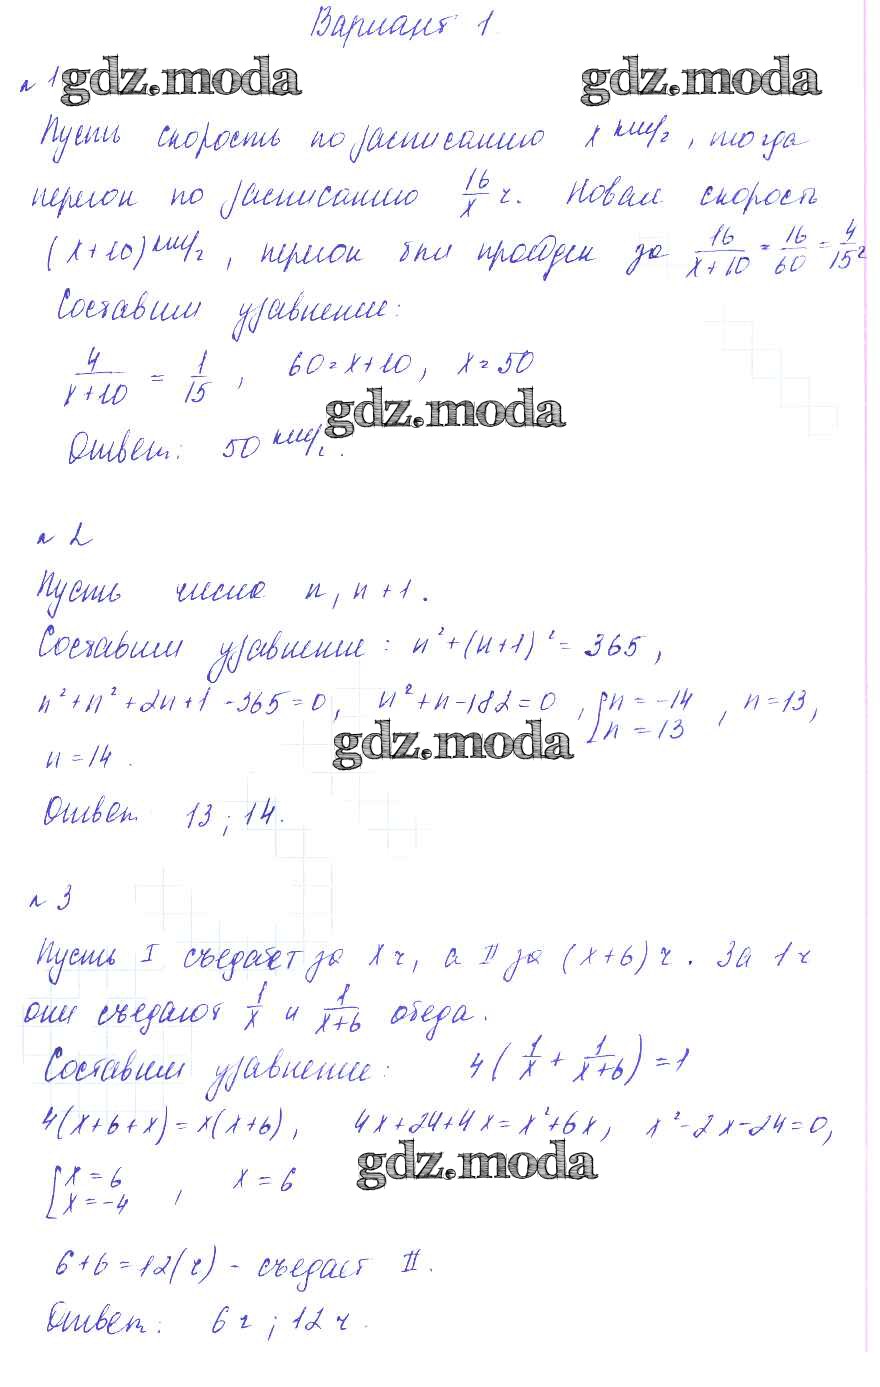 Вариант 1
№1
gdz.moda gdz.moda
Пусть скорость по расписанию x км/ч, тогда
перегон по расписанию 16/x ч. Новая скорость
(x+10) км/ч, перегон был пройден за 16/(x+10) = 16/60 = 4/15 ч
Составим уравнение:
4/(x+10) = 1/15, 60=x+10, x=50
gdz.moda
Ответ: 50 км/ч.
№2
Пусть числа n, n+1.
Составим уравнение: n²+(n+1)²=365,
n²+n²+2n+1-365=0, n²+n-182=0, [n=-14 n=13, n=13,
gdz.moda
n=14.
Ответ 13; 14.
№3
Пусть I съедает за x ч, а II за (x+6) ч. За 1 ч
они съедают 1/x и 1/(x+6) обеда.
Составим уравнение: 4(1/x + 1/(x+6))=1
4(x+6+x)=x(x+6), 4x+24+4x=x²+6x, x²-2x-24=0,
gdz.moda
[x=6 x=-4, x=6
6+6=12(ч) - съедает II.
Ответ: 6 ч; 12 ч.